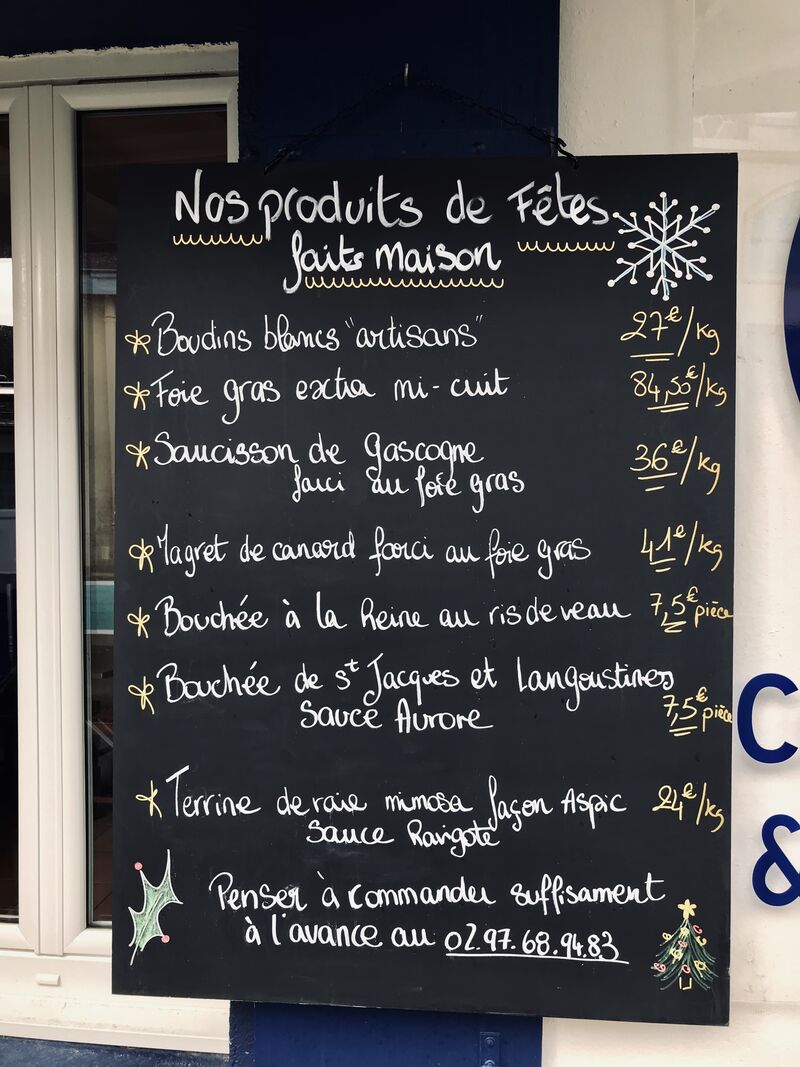 Nos produits de Fêtes
faits maison
Boudins blancs "artisans" 27€/kg
Foie gras extra mi-cuit 84,50€/kg
Saucisson de Gascogne 36€/kg
farci au foie gras
Magret de canard farci au foie gras 41€/kg
Bouchée à la Reine au ris de veau 7,5€ pièce
Bouchée de St Jacques et Langoustines
Sauce Aurore 7,5€ pièce
Terrine de raie mimosa façon Aspic 24€/kg
Sauce Ravigote
Penser à commander suffisament
à l'avance au 02.97.68.94.83
C
&